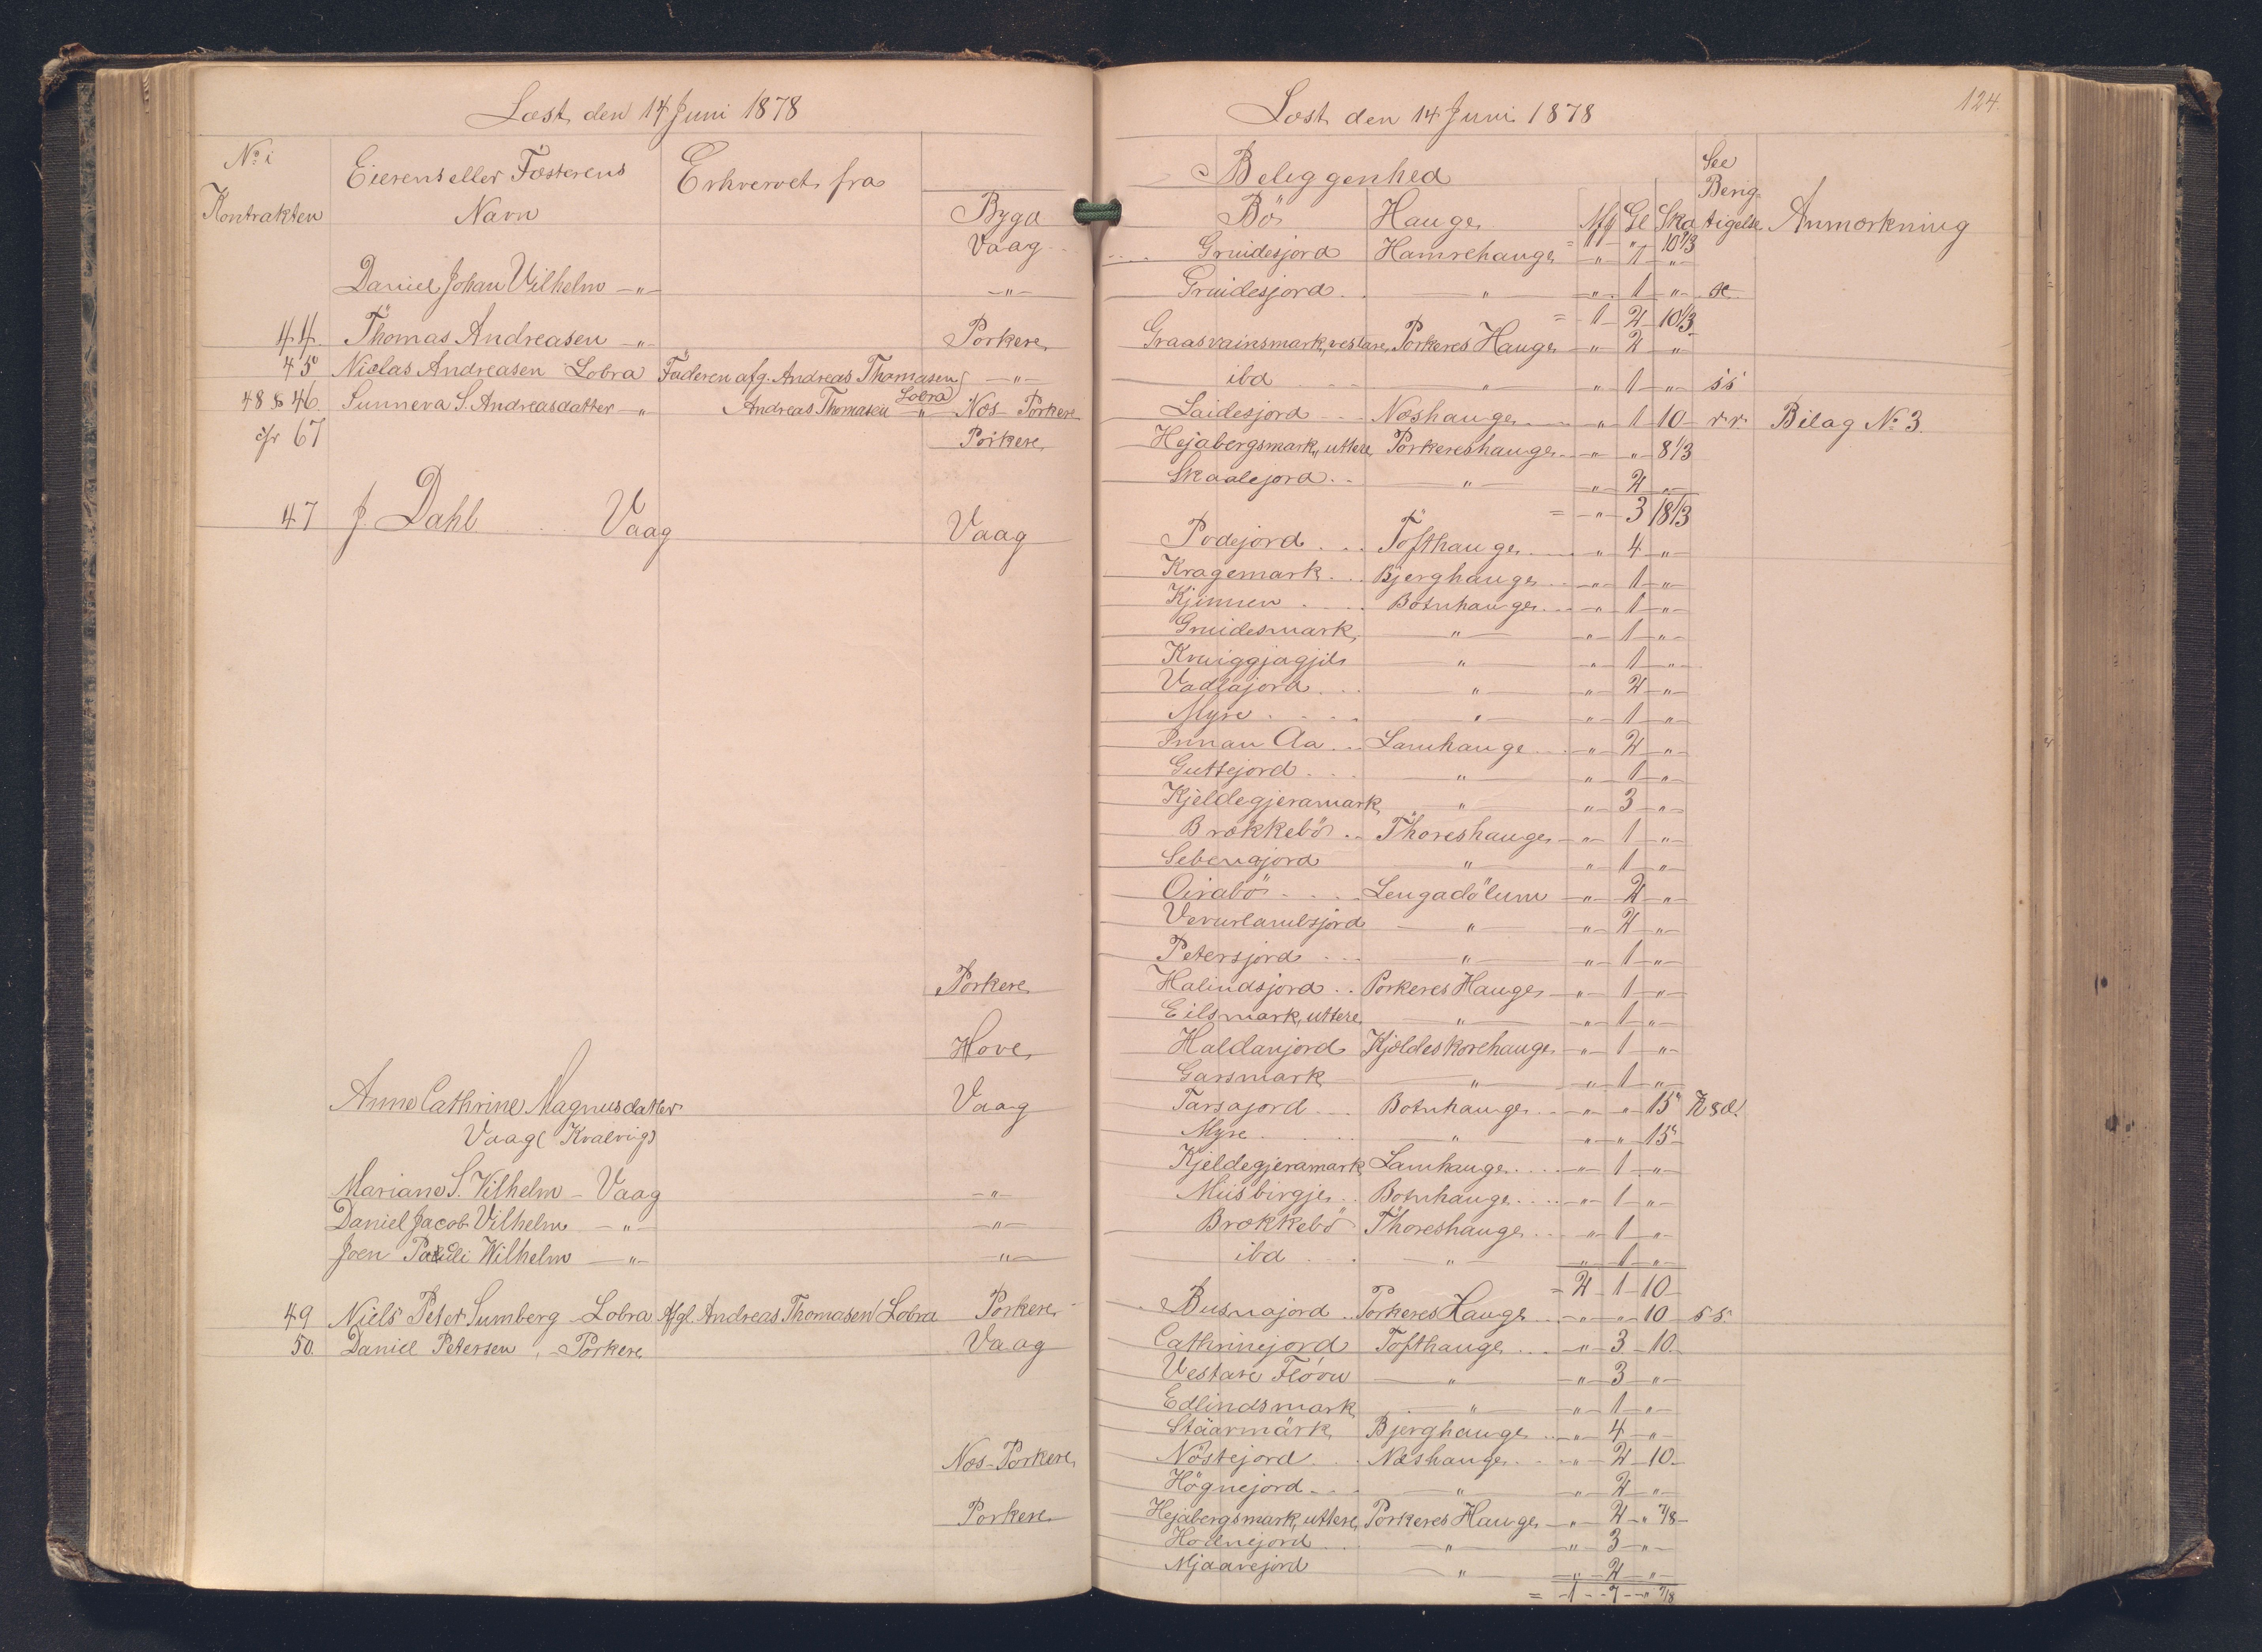 Læst den 14 Juni 1878
No i Kontrakten
Eierens eller Fæsterens Navn
Erhvervet fra
Bygd
Vaag
Daniel Johan Vilhelm - " - " -
44. Thomas Andreasen - " Porkere
45 Niclas Andreasen Lobra Faderen afg. Andreas Thomasen - " -
48 & 46. Sunneva S. Andreasdatter - " Andreas Thomasen Lobra Næs - Porkere
cfr 67 Porkere
47 J. Dahl Vaag Vaag
Porkere
Hove
Anne Cathrine Magnusdatter Vaag
Vaag (Kvalvig)
Mariane S. Vilhelm - Vaag - " -
Daniel Jacob Vilhelm - " - - " -
Joen Pauli Wilhelm - " - - " -
49 Niels Peter Sumberg Lobra Afgl. Andreas Thomasen Lobra Porkere
50. Daniel Petersen, - Porkere Vaag
Næs - Porkere
Porkere
124.
Læst den 14 Juni 1878
Beleggenhed
See Berigtigelse
Bö Hauge Mk Gl Ska Anmærkning
= 11 - " - 10 1/3
Gruidesjord Hamrehauge - " - 1 - " -
Gruidesjord - " - - " - 1 - " - æ
= 1 - 2 - 10 1/3
Graasvainsmark, vestare Porkeres Hauge - " - 2 - " -
ibd - " - - " - 1 - " - ss
Laidesjord Næshauge - " - 1 - 10 - rr Bilag No 3.
Hejabergsmark, uttere Porkereshauge - " - " - 8 1/3
Skaalejord - " - - " - 2 - " -
= - " - 3 18 1/3
Podejord Tofthauge - " - 4 - " -
Kragemark Bjerghauge - " - 1 - " -
Kjimmen Botnhauge - " - 1 - " -
Gruidesmark - " - - " - 1 - " -
Kruiggjagjil - " - - " - 1 - " -
Vadlajord - " - - " - 2 - " -
Myre - " - - " - 1 - " -
Innan Aa Lamhauge - " - 2 - " -
Guttejord - " - - " - 1 - " -
Kjeldegjeramark - " - - " - 3 - " -
Brækkebö Thoreshauge - " - 1 - " -
Sebengjord - " - - " - 1 - " -
Oirabö Lengadölum - " - 2 - " -
Verurlambsjord - " - - " - 2 - " -
Petersjord - " - - " - 1 - " -
Halindsjord Porkeres Hauge - " - 1 - " -
Eilsmark, uttere - " - - " - 1 - " -
Haldanjord Kjældeskorehauge - " - 1 - " -
Garsmark - " - - " - 1 - " -
Tarsajord Botnhauge - " - " - 15
Myre - " - - " - " - 15
Kjeldegjeramark Lamhauge - " - 1 - " -
Miisbirgje Botnhauge - " - 1 - " -
Brækkebö Thoreshauge - " - 1 - " -
ibd - " - - " - 1 - " -
= 2 - 1 - 10
Busnajord Porkeres Hauge - " - " - 10 ss
Cathrinejord Tofthauge - " - 3 - 10
Vestare Flóvu - " - - " - 3 - " -
Edlindsmark - " - - " - 1 - " -
Stäarmärk Bjerghauge - " - 4 - " -
Nöstejord Næshauge - " - 2 - 10
Högnejord - " - - " - 2 - " -
Hejabergsmark, uttere Porkeres Hauge - " - 2 - " 7/8
Hodnejord - " - - " - 3 - " -
Mjaavejord - " - - " - 2 - " -
= - 1 - 7 - " 7/8